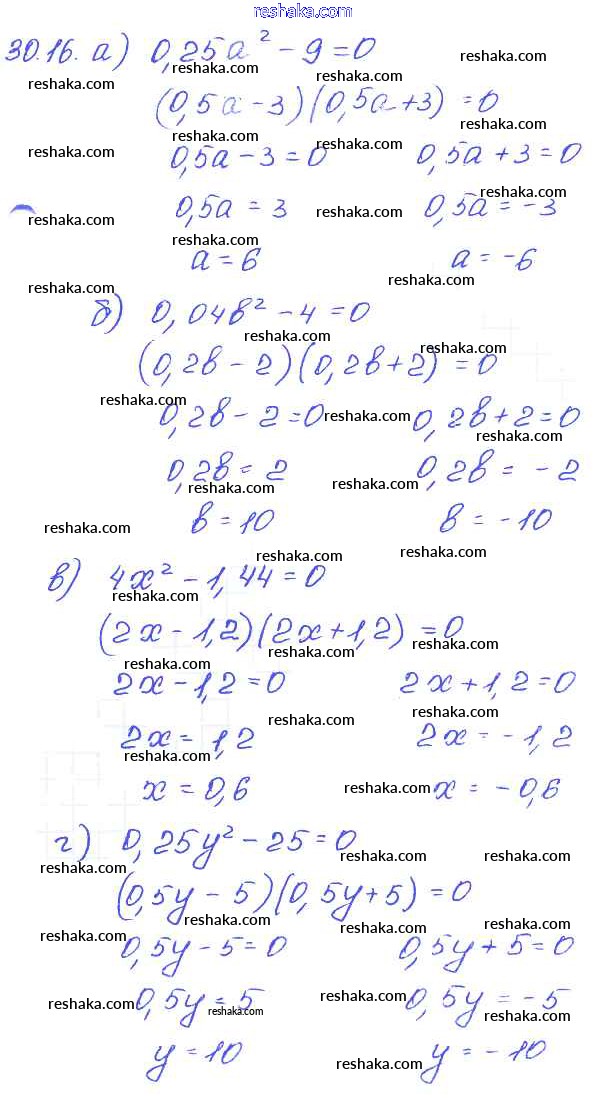 reshaka.com
30.16. а) 0,25a² - 9 = 0
reshaka.com reshaka.com reshaka.com
(0,5a - 3)(0,5a + 3) = 0
reshaka.com reshaka.com
0,5a - 3 = 0 0,5a + 3 = 0
reshaka.com reshaka.com
0,5a = 3 0,5a = -3
reshaka.com reshaka.com reshaka.com
reshaka.com
a = 6 a = -6
reshaka.com reshaka.com
б) 0,04b² - 4 = 0
reshaka.com reshaka.com
(0,2b - 2)(0,2b + 2) = 0
reshaka.com
0,2b - 2 = 0 reshaka.com 0,2b + 2 = 0
reshaka.com
0,2b = 2 0,2b = -2
reshaka.com reshaka.com
b = 10 b = -10
reshaka.com reshaka.com reshaka.com
в) 4x² - 1,44 = 0
reshaka.com
(2x - 1,2)(2x + 1,2) = 0
reshaka.com reshaka.com reshaka.com
2x - 1,2 = 0 2x + 1,2 = 0
reshaka.com reshaka.com
2x = 1,2 2x = -1,2
reshaka.com reshaka.com
x = 0,6 reshaka.com x = -0,6
г) 0,25y² - 25 = 0
reshaka.com reshaka.com reshaka.com
(0,5y - 5)(0,5y + 5) = 0
reshaka.com reshaka.com reshaka.com
reshaka.com
0,5y - 5 = 0 0,5y + 5 = 0
reshaka.com reshaka.com
reshaka.com 0,5y = 5 reshaka.com 0,5y = -5
reshaka.com reshaka.com
y = 10 y = -10
reshaka.com